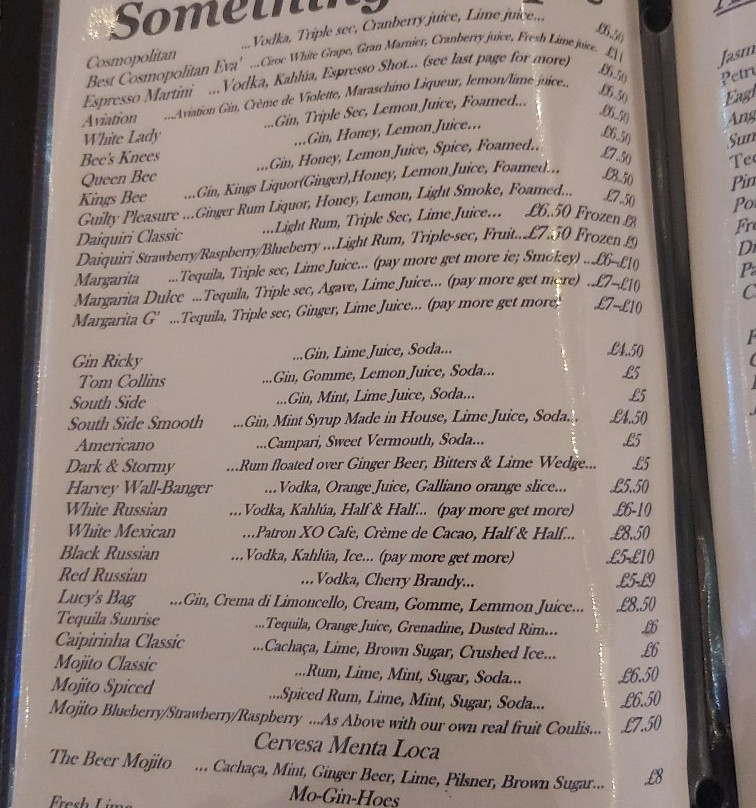 Something
Cosmopolitan ...Vodka, Triple sec, Cranberry juice, Lime juice... £6.50
Best Cosmopolitan Eva' ...Ciroc White Grape, Gran Marnier, Cranberry juice, Fresh Lime juice. £11
Espresso Martini ...Vodka, Kahlúa, Espresso Shot... (see last page for more) £6.50
Aviation ...Aviation Gin, Crème de Violette, Maraschino Liqueur, lemon/lime juice.. £6.50
White Lady ...Gin, Triple Sec, Lemon Juice, Foamed... £6.50
Bee's Knees ...Gin, Honey, Lemon Juice... £6.50
Queen Bee ...Gin, Honey, Lemon Juice, Spice, Foamed... £7.50
Kings Bee ...Gin, Kings Liquor(Ginger),Honey, Lemon Juice, Foamed... £8.50
Guilty Pleasure ...Ginger Rum Liquor, Honey, Lemon, Light Smoke, Foamed... £7.50
Daiquiri Classic ...Light Rum, Triple Sec, Lime Juice... £6.50 Frozen £8
Daiquiri Strawberry/Raspberry/Blueberry ...Light Rum, Triple-sec, Fruit...£7.50 Frozen £9
Margarita ...Tequila, Triple sec, Lime Juice... (pay more get more ie; Smokey) ...£6-£10
Margarita Dulce ...Tequila, Triple sec, Agave, Lime Juice... (pay more get more) ..£7-£10
Margarita G' ...Tequila, Triple sec, Ginger, Lime Juice... (pay more get more) £7-£10
Gin Ricky ...Gin, Lime Juice, Soda... £4.50
Tom Collins ...Gin, Gomme, Lemon Juice, Soda... £5
South Side ...Gin, Mint, Lime Juice, Soda... £5
South Side Smooth ...Gin, Mint Syrup Made in House, Lime Juice, Soda... £4.50
Americano ...Campari, Sweet Vermouth, Soda... £5
Dark & Stormy ...Rum floated over Ginger Beer, Bitters & Lime Wedge... £5
Harvey Wall-Banger ...Vodka, Orange Juice, Galliano orange slice... £5.50
White Russian ...Vodka, Kahlúa, Half & Half... (pay more get more) £6-10
White Mexican ...Patron XO Cafe, Crème de Cacao, Half & Half... £8.50
Black Russian ...Vodka, Kahlúa, Ice... (pay more get more) £5-£10
Red Russian ...Vodka, Cherry Brandy... £5-£9
Lucy's Bag ...Gin, Crema di Limoncello, Cream, Gomme, Lemmon Juice... £8.50
Tequila Sunrise ...Tequila, Orange Juice, Grenadine, Dusted Rim... £6
Caipirinha Classic ...Cachaça, Lime, Brown Sugar, Crushed Ice... £6
Mojito Classic ...Rum, Lime, Mint, Sugar, Soda... £6.50
Mojito Spiced ...Spiced Rum, Lime, Mint, Sugar, Soda... £6.50
Mojito Blueberry/Strawberry/Raspberry ...As Above with our own real fruit Coulis... £7.50
Cervesa Menta Loca
The Beer Mojito ... Cachaça, Mint, Ginger Beer, Lime, Pilsner, Brown Sugar... £8
Mo-Gin-Hoes
Fresh Lime